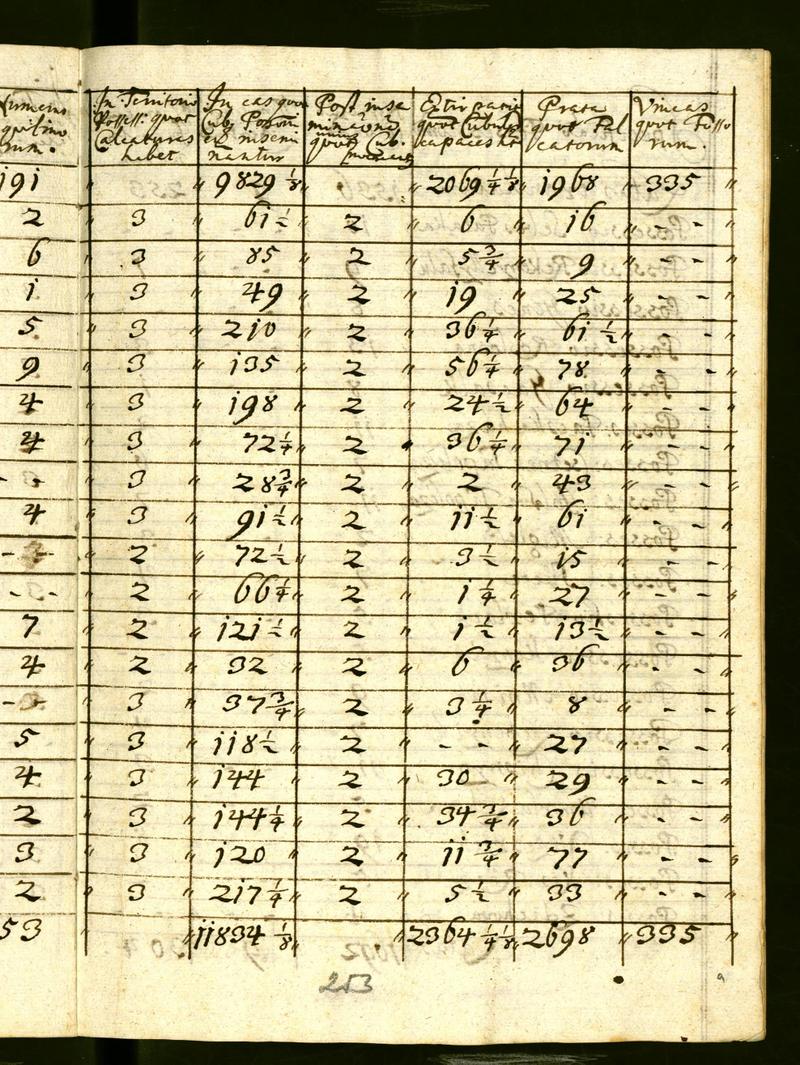 In Territorio In eas quot Post insemi Extirpatis Prata Vineas
Possess: quot Cub. Posoni quot Cubulos quot Fal quot Fosso
Calcaturas inseminantur quot Cub. capaces catorum rum.
habet
191 " 9829 1/8 " 2069 1/4 1/8 1968 " 335 "
2 " 3 " 61 1/2 " 2 " 6 " 16 " - - "
6 " 3 " 85 " 2 " 5 3/4 " 9 " - - "
1 " 3 " 49 " 2 " 19 " 25 " - - "
5 " 3 " 210 " 2 " 36 1/4 " 61 1/2 " - - "
9 " 3 " 135 " 2 " 56 1/4 " 78 " - - "
4 " 3 " 198 " 2 " 24 1/2 " 64 " - - "
4 " 3 " 72 1/4 " 2 " 36 1/4 " 71 " - - "
" 3 " 28 3/4 " 2 " 2 " 43 " - - "
4 " 3 " 91 1/2 " 2 " 11 1/2 " 61 " - - "
" 2 " 72 1/2 " 2 " 3 1/2 " 15 " - - "
- - " 2 " 66 1/4 " 2 " 1 1/4 " 27 " - - "
7 " 2 " 121 1/2 " 2 " 1 1/2 " 13 1/2 " - - "
4 " 2 " 32 " 2 " 6 " 36 " - - "
" 3 " 37 3/4 " 2 " 3 1/4 " 8 " - - "
5 " 3 " 118 1/2 " 2 " - - " 27 " - - "
4 " 3 " 144 " 2 " 30 " 29 " - - "
2 " 3 " 144 1/4 " 2 " 34 3/4 " 36 " - - "
3 " 3 " 120 " 2 " 11 3/4 " 77 " - - "
2 " 3 " 217 1/4 " 2 " 5 1/2 " 33 " - - "
53 " 11834 1/8 " 2364 1/4 1/8 " 2698 " 335 "
253